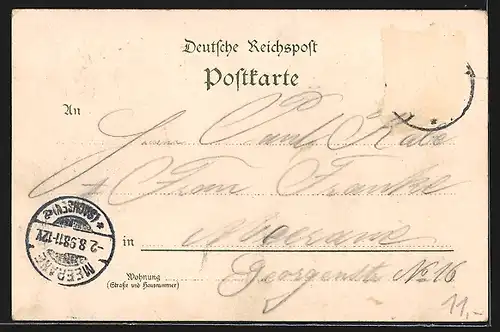 Deutsche Reichspost
Postkarte
An
Herrn Paul Kale
Frau Franke
in Meerane
Wohnung
(Straße und Hausnummer)
Georgenstr No 16
MEERANE
-2.8.98.11-12V.
* (SACHSEN) *
11,-